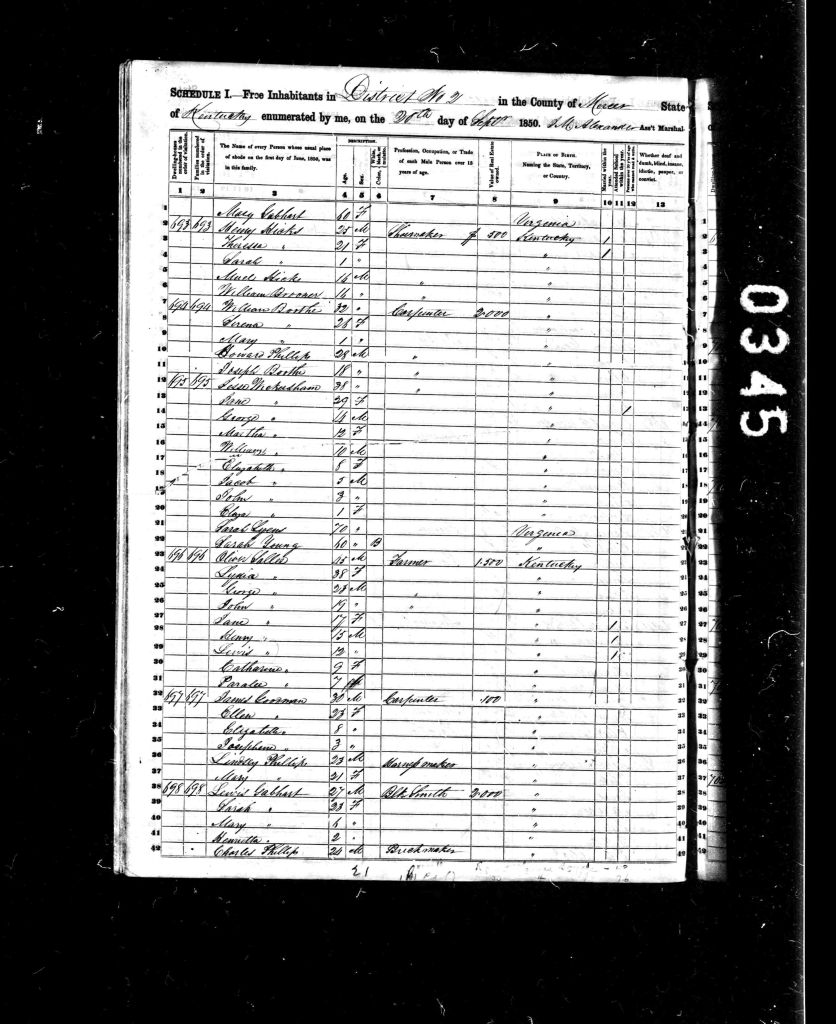 SCHEDULE I.—Free Inhabitants in District No 2 in the County of Mercer State
of Kentucky enumerated by me, on the 20th day of Sept 1850. Alexander Ass't Marshal.
Dwelling-houses numbered in the order of visitation.
Families numbered in the order of visitation.
The Name of every Person whose usual place of abode on the first day of June, 1850, was in this family.
DESCRIPTION.
Age.
Sex.
Profession, Occupation, or Trade of each Male Person over 15 years of age.
Value of Real Estate owned.
PLACE OF BIRTH. Naming the State, Territory, or Country.
Married within the year.
Whether deaf and dumb, blind, insane, idiotic, pauper, or convict.
1 2 3 4 5 6 7 8 9 10 11 12 13
1 Mary Gabhart 60 F Virginia
2 693 693 Henry Hicks 25 M Shoemaker 500 Kentucky 1
3 Theressa " 21 F " 1
4 Sarah " 1 " "
5 Hicks 16 M " "
6 William 16 " " "
7 694 694 William Boothe 32 " Carpenter 2.000 "
8 Serena " 26 F "
9 Mary " 1 " "
10 Howard Phillips 28 M " "
11 Joseph Boothe 18 " " "
12 695 695 Wickersham 38 " " "
13 Jane " 29 F " 1
14 George " 14 M "
15 Martha " 12 F "
16 William " 10 M "
17 Elizabeth " 8 F "
18 Jacob " 5 M "
19 John " 3 " "
20 Eliza " 1 F "
21 Sarah Lyens 70 " Virginia
22 Sarah Young 60 " B "
23 696 696 Oliver 45 M Farmer 1.500 Kentucky
24 " 38 F "
25 George " M " "
26 John " 19 " " "
27 Jane " 17 F " 1
28 Henry " 15 M " 1
29 Lewis " 12 " " 1
30 Catharine " 9 F "
31 " 7 "
32 697 697 James 30 M Carpenter 100 "
33 Ellen " 23 F "
34 Elizabeth " 8 " "
35 Josephine " 3 " "
36 Lindsey Phillips 23 M maker "
37 Mary " 21 F "
38 698 698 Lewis Gabhart 27 M Blk Smith 2.000 "
39 Sarah " 23 F "
40 Mary " 6 " "
41 Henrietta " 2 " "
42 Charles Phillips 24 M Brickmaker "
0345